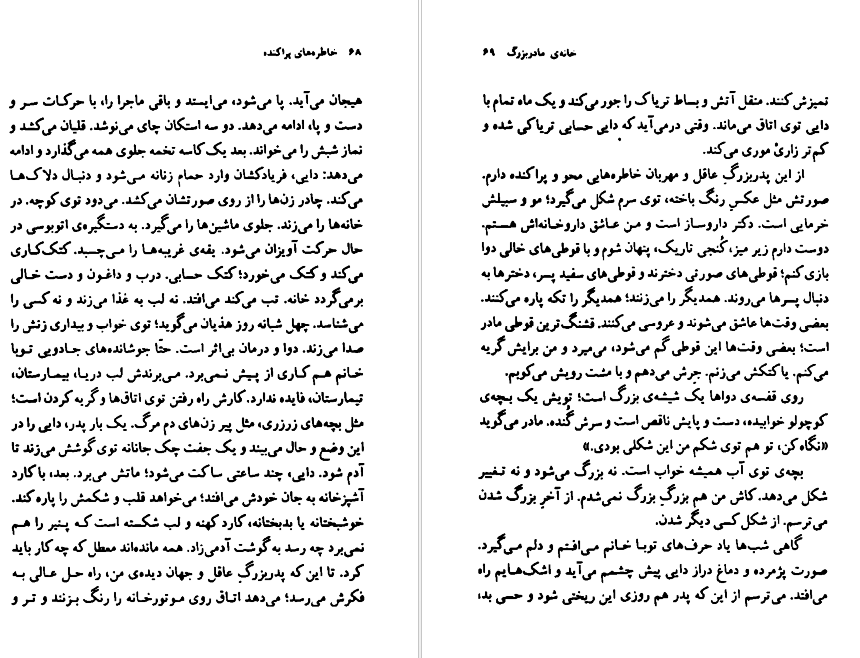 ۶۸ خاطره‌های پراکنده
هیجان می‌آید. پا می‌شود، می‌ایستد و باقی ماجرا را، با حرکات سر و
دست و پا، ادامه می‌دهد. دو سه استکان چای می‌نوشد. قلیان می‌کشد و
نماز شبش را می‌خواند. بعد یک کاسه تخمه جلوی همه می‌گذارد و ادامه
می‌دهد: دایی، فریادکشان وارد حمام زنانه می‌شود و دنبال دلاک‌ها
می‌کند. چادر زن‌ها را از روی صورتشان می‌کشد. می‌دود توی کوچه. در
خانه‌ها را می‌زند. جلوی ماشین‌ها را می‌گیرد. به دستگیره‌ی اتوبوسی در
حال حرکت آویزان می‌شود. یقه‌ی غریبه‌ها را می‌چسبد. کتک‌کاری
می‌کند و کتک می‌خورد؛ کتک حسابی. درب و داغون و دست خالی
برمی‌گردد خانه. تب می‌کند می‌افتد. نه لب به غذا می‌زند و نه کسی را
می‌شناسد. چهل شبانه روز هذیان می‌گوید؛ توی خواب و بیداری زنش را
صدا می‌زند. دوا و درمان بی‌اثر است. حتّا جوشانده‌های جادویی توبا
خانم هم کاری از پیش نمی‌برد. می‌برندش لب دریا، بیمارستان،
تیمارستان، فایده ندارد. کارش راه رفتن توی اتاق‌ها و گریه کردن است؛
مثل بچه‌های زرزری، مثل پیر زن‌های دم مرگ. یک بار پدر، دایی را در
این وضع و حال می‌بیند و یک جفت چک جانانه توی گوشش می‌زند تا
آدم شود. دایی، چند ساعتی ساکت می‌شود؛ ماتش می‌برد. بعد، با کارد
آشپزخانه به جان خودش می‌افتد؛ می‌خواهد قلب و شکمش را پاره کند.
خوشبختانه یا بدبختانه، کارد کهنه و لب شکسته است که پنیر را هم
نمی‌برد چه رسد به گوشت آدمی‌زاد. همه مانده‌اند معطل که چه کار باید
کرد. تا این که پدربزرگ عاقل و جهان دیده‌ی من، راه حل عالی به
فکرش می‌رسد؛ می‌دهد اتاق روی موتورخانه را رنگ بزنند و تر و
خانه‌ی مادربزرگ ۶۹
تمیزش کنند. منقل آتش و بساط تریاک را جور می‌کند و یک ماه تمام با
دایی توی اتاق می‌ماند. وقتی درمی‌آید که دایی حسابی تریاکی شده و
کم‌تر زاریْ موری می‌کند.
از این پدربزرگِ عاقل و مهربان خاطره‌هایی محو و پراکنده دارم.
صورتش مثل عکسِ رنگ باخته، توی سرم شکل می‌گیرد؛ مو و سبیلش
خرمایی است. دکتر داروساز است و من عاشق داروخانه‌اش هستم.
دوست دارم زیر میز، کُنجی تاریک، پنهان شوم و با قوطی‌های خالی دوا
بازی کنم؛ قوطی‌های صورتی دخترند و قوطی‌های سفید پسر، دخترها به
دنبال پسرها می‌روند. همدیگر را می‌زنند؛ همدیگر را تکه پاره می‌کنند.
بعضی وقت‌ها عاشق می‌شوند و عروسی می‌کنند. قشنگ‌ترین قوطی مادر
است؛ بعضی وقت‌ها این قوطی گم می‌شود، می‌میرد و من برایش گریه
می‌کنم. یا کتکش می‌زنم. جِرش می‌دهم و با مشت رویش می‌کوبم.
روی قفسه‌ی دواها یک شیشه‌ی بزرگ است؛ تویش یک بچه‌ی
کوچولو خوابیده، دست و پایش ناقص است و سرش گُنده. مادر می‌گوید
«نگاه کن، تو هم توی شکم من این شکلی بودی.»
بچه‌ی توی آب همیشه خواب است. نه بزرگ می‌شود و نه تغییر
شکل می‌دهد. کاش من هم بزرگِ بزرگ نمی‌شدم. از آخرِ بزرگ شدن
می‌ترسم. از شکل کسی دیگر شدن.
گاهی شب‌ها یاد حرف‌های توبا خانم می‌افتم و دلم می‌گیرد.
صورت پژمرده و دماغ دراز دایی پیش چشمم می‌آید و اشک‌هایم راه
می‌افتد. می‌ترسم از این که پدر هم روزی این ریختی شود و حسی بد،